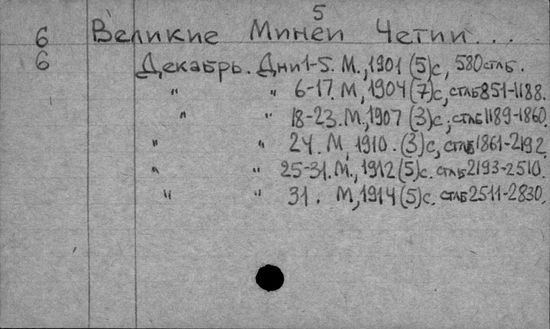 5
6 Великие Минеи Четии...
6 Декабрь. Дни 1-5. М., 1901 (5)с, 580 стлб.
" " 6-17. М, 1904 (7)с, стлб 851-1188.
" " 18-23. М, 1907 (3)с, стлб 1189-1860.
" " 24. М, 1910. (3)с, стлб 1861-2192
" " 25-31. М., 1912 (5)с. стлб 2193-2510.
" " 31. М, 1914 (5)с. стлб 2511-2830.